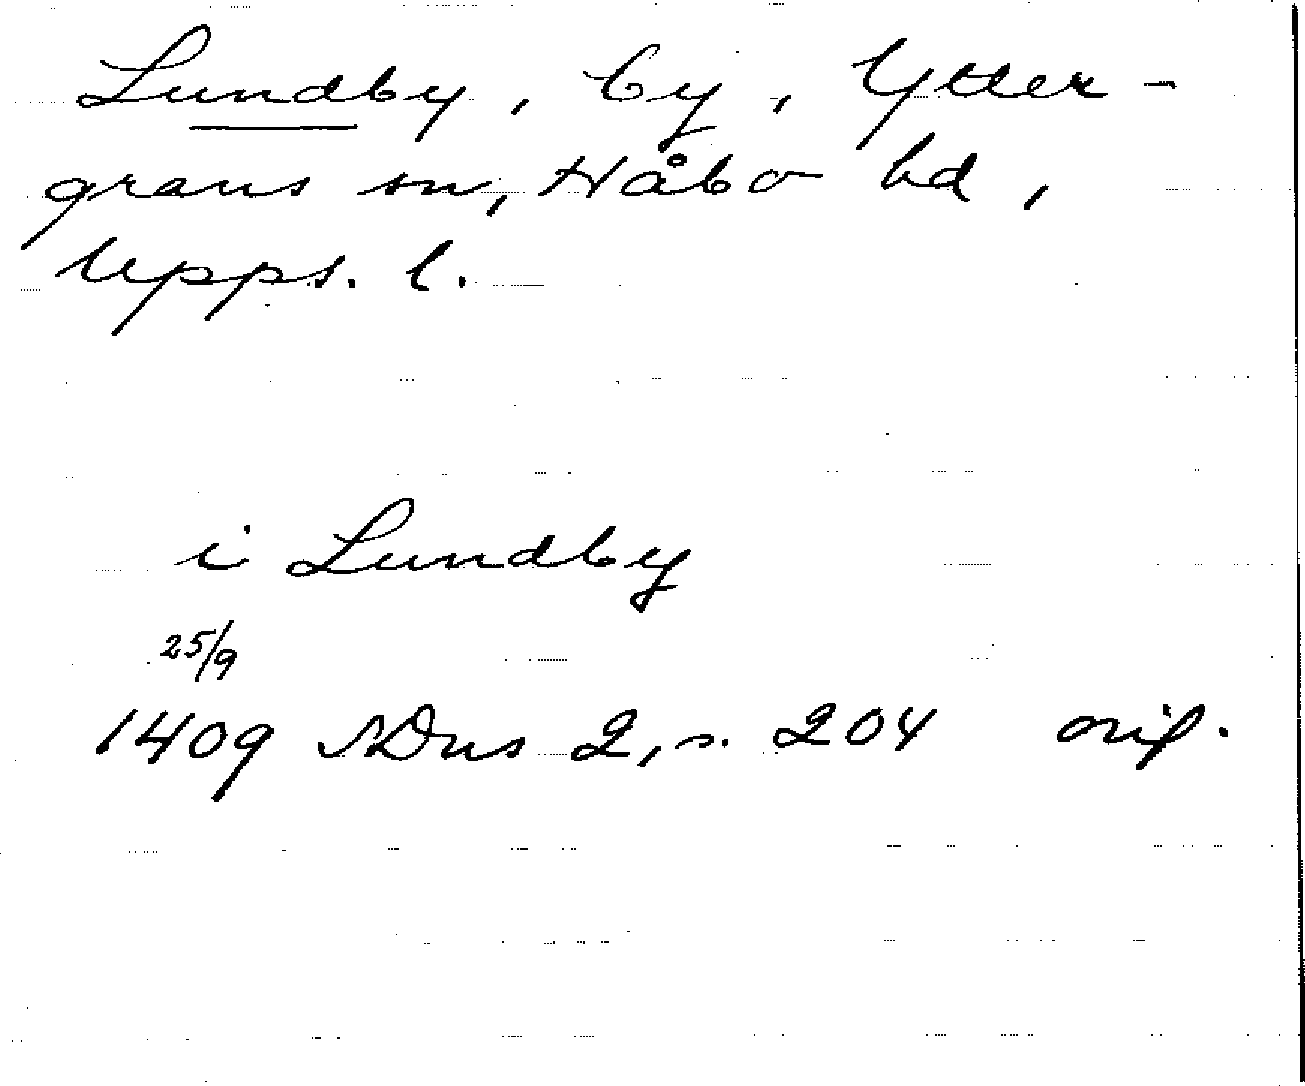 Lundby, by, Ytter-
grans sn, Håbo hd,
Upps. l.
i Lundby
25/9
1409 SDns 2, s. 204 orig.